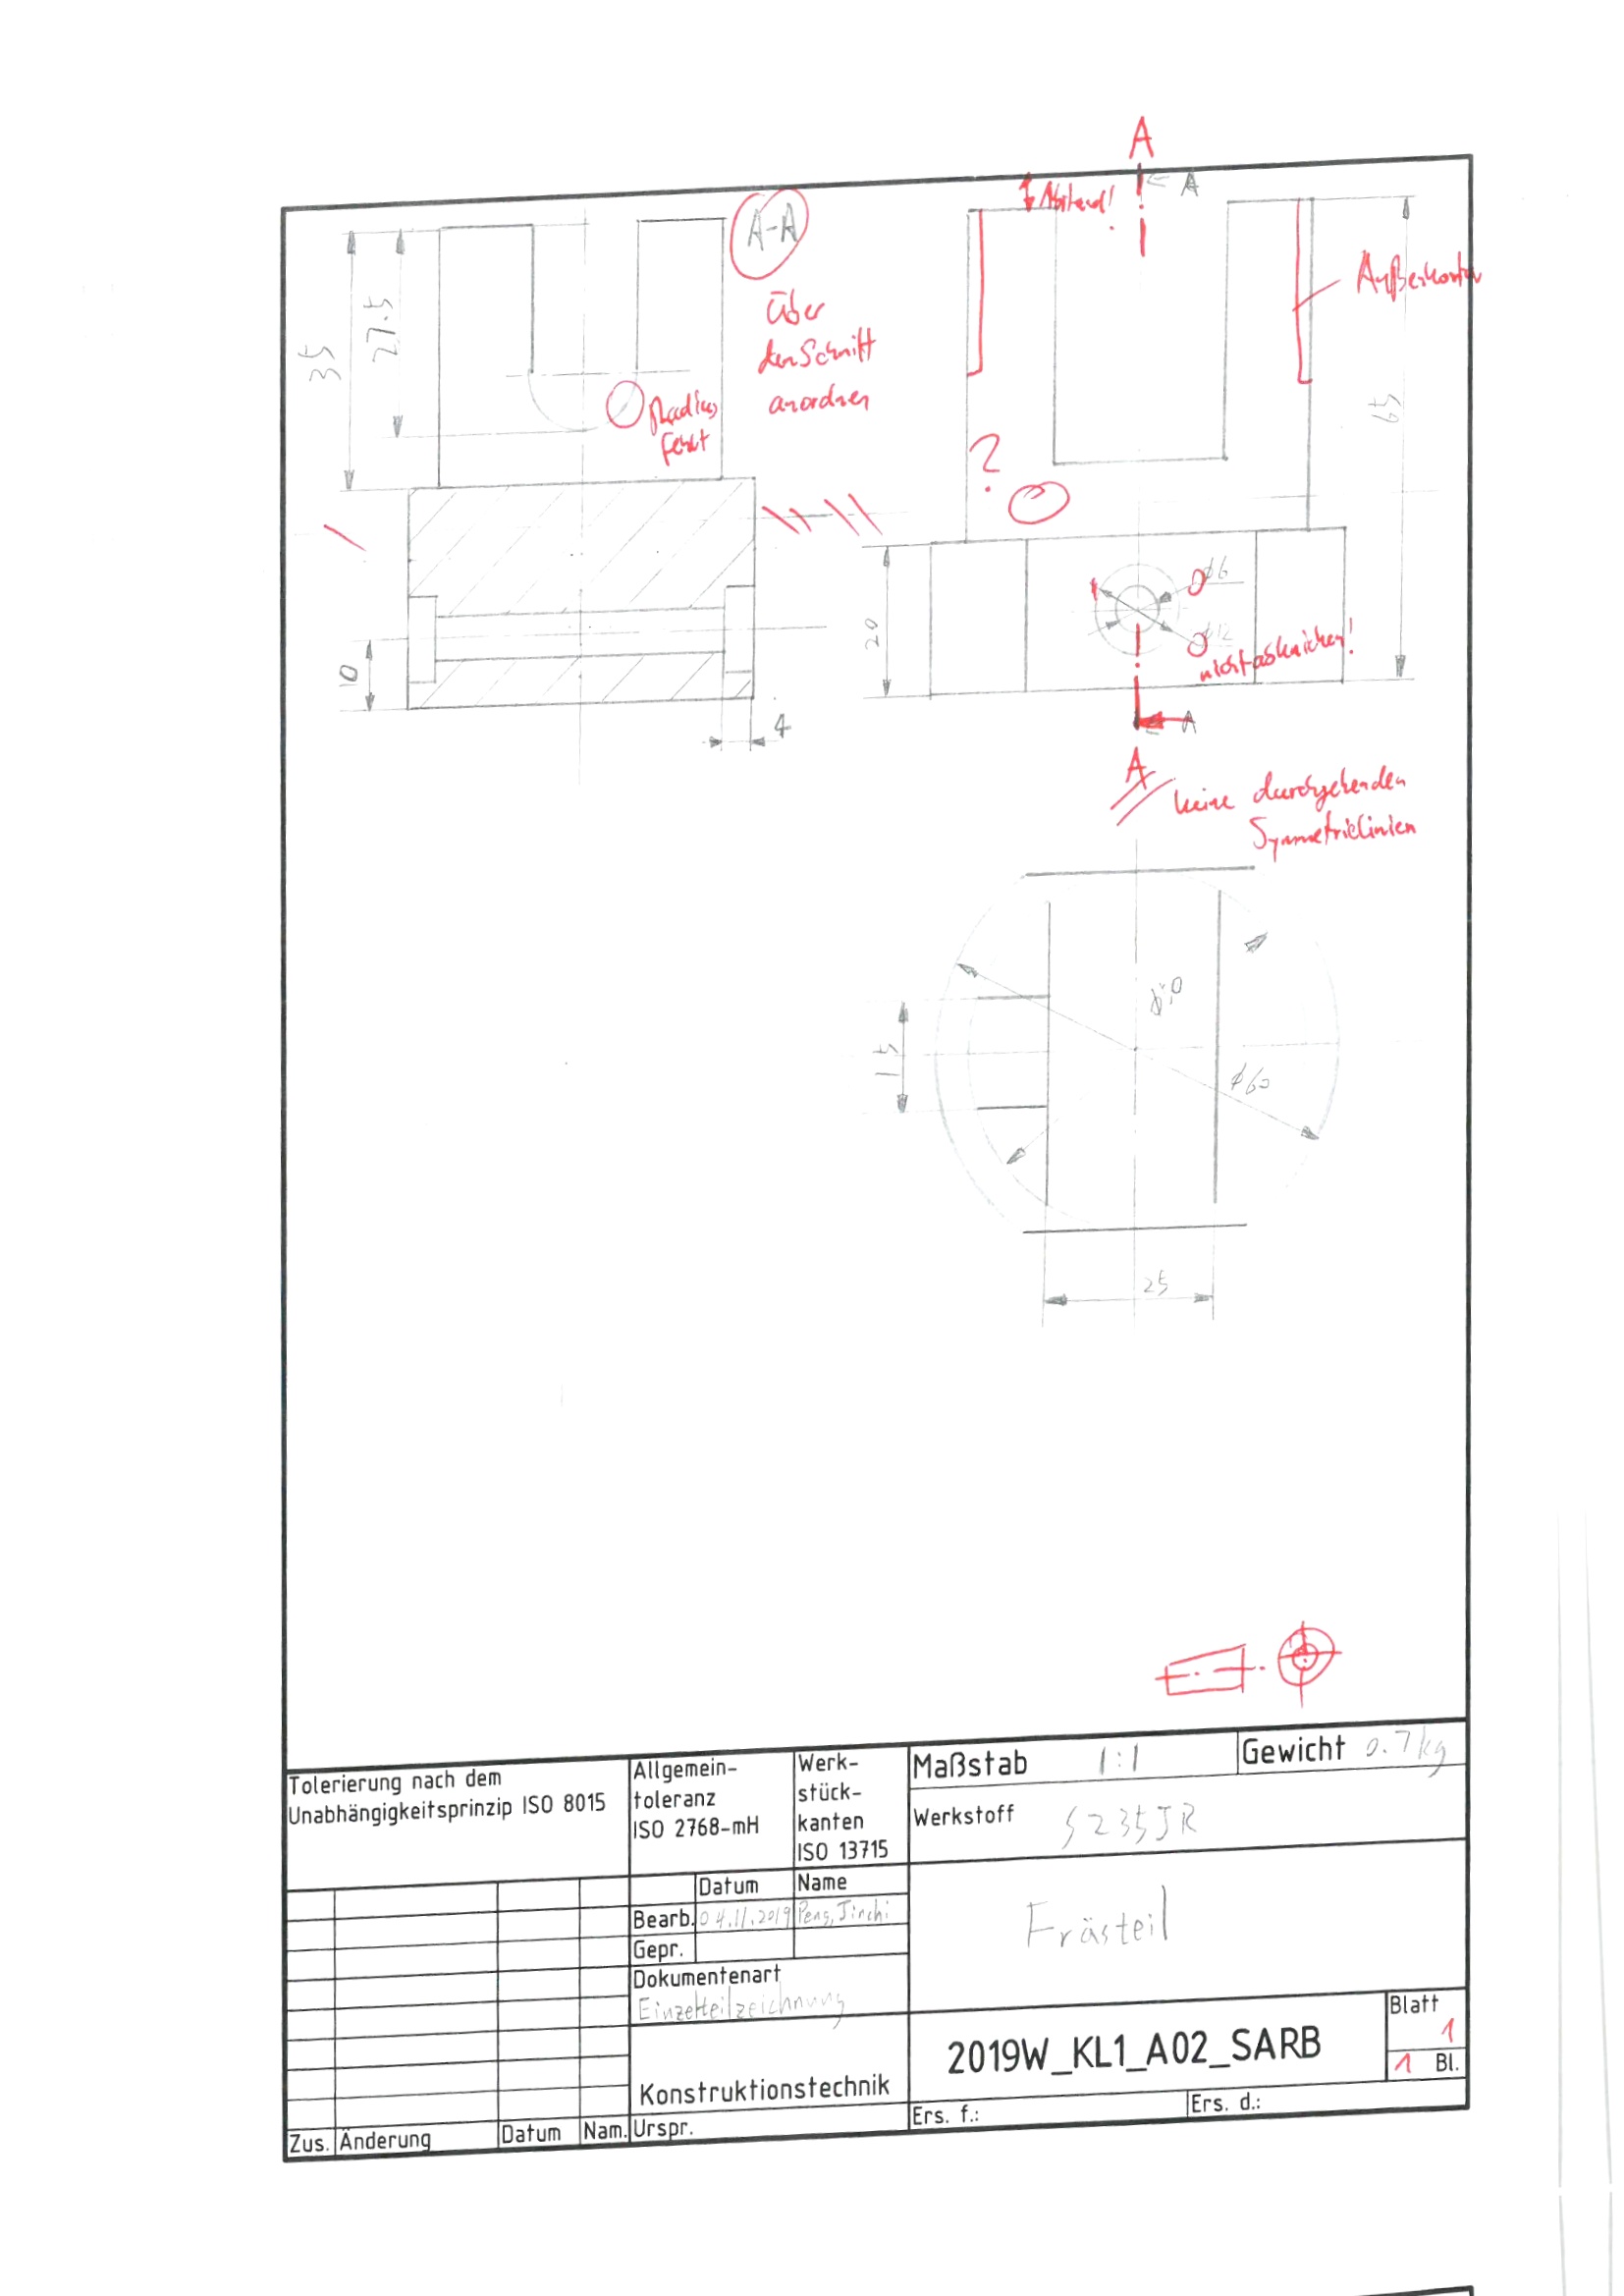 A
A
Abstand!
A-A
Außenkontur
über
den Schnitt
anordnen
35
27.5
Radius
fehlt
65
?
ø6
20
ø12
nicht abknicken!
10
4
A
A
keine durchgehenden
Symmetrielinien
15
ø60
25
Tolerierung nach dem
Unabhängigkeitsprinzip ISO 8015
Allgemein-
toleranz
ISO 2768-mH
Werk-
stück-
kanten
ISO 13715
Maßstab 1:1
Gewicht 0.7kg
Werkstoff S235JR
Datum Name
Bearb. 04.11.2019 Peng, Jinchi
Gepr.
Dokumentenart
Einzelteilzeichnung
Frästeil
Konstruktionstechnik
2019W_KL1_A02_SARB
Blatt
1
1 Bl.
Zus. Änderung Datum Nam. Urspr.
Ers. f.:
Ers. d.: